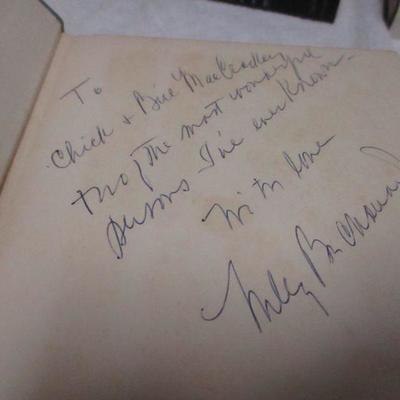 To
Chick + Bill
two of the most wonderful
persons I've ever known.
With love